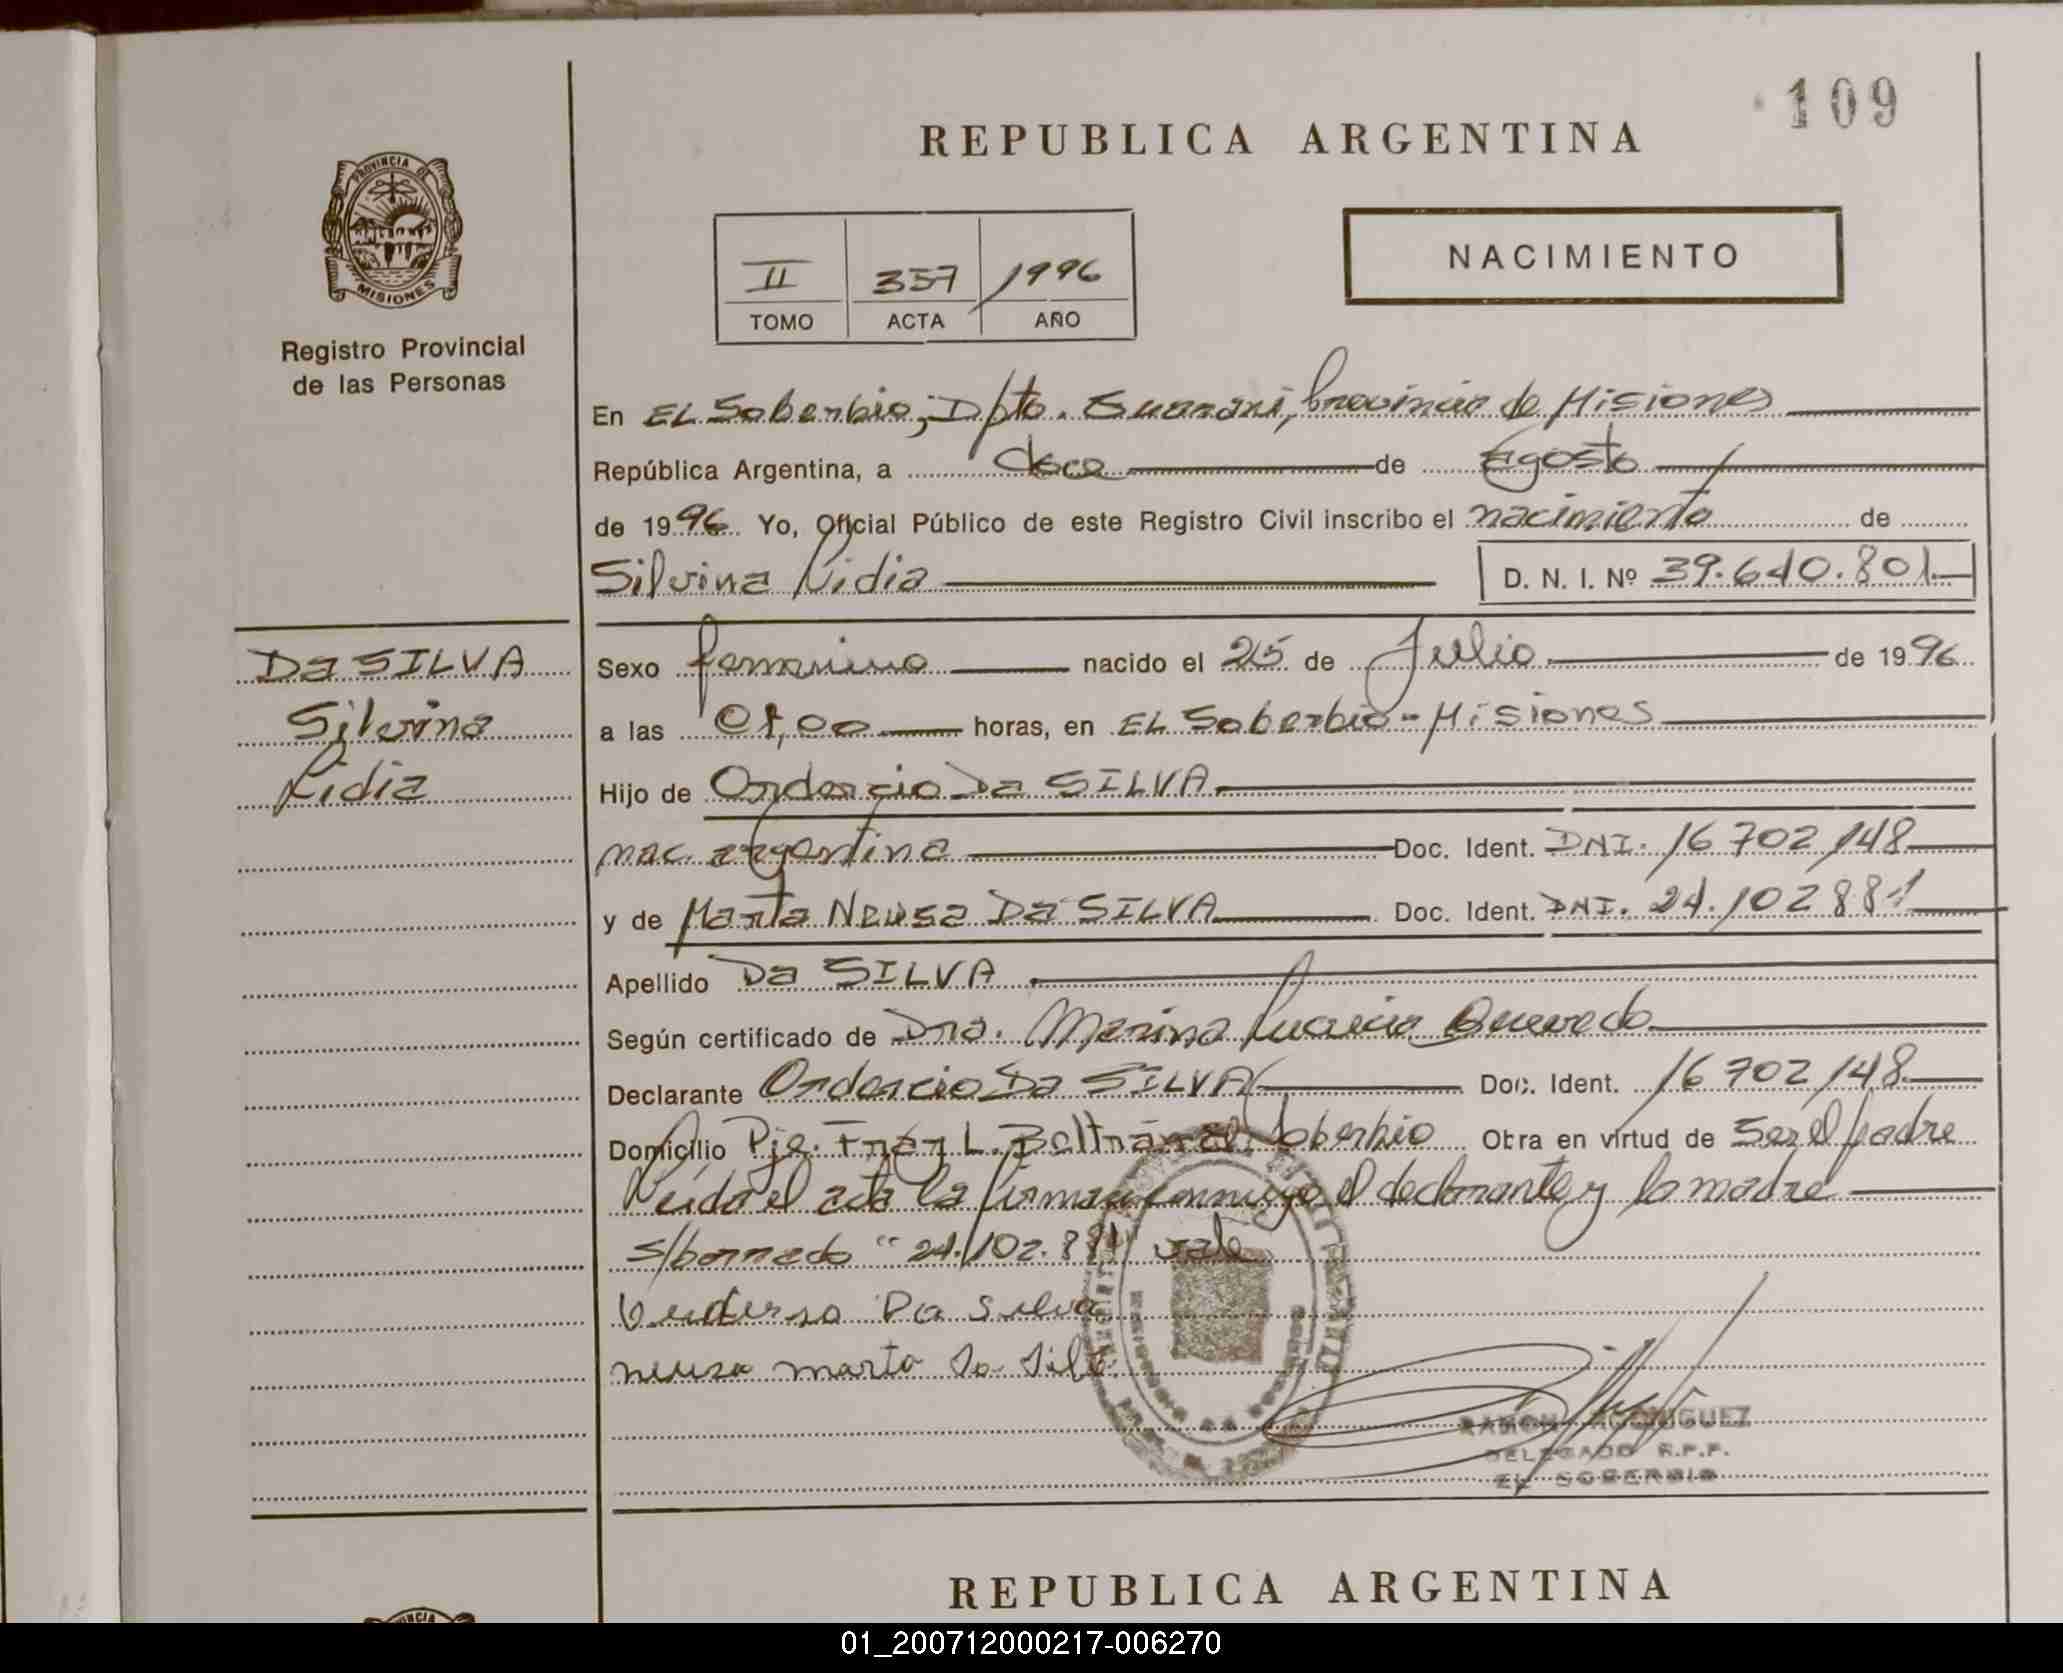 109
REPUBLICA ARGENTINA
PROVINCIA DE
MISIONES
Registro Provincial
de las Personas
II 357 1996
TOMO ACTA AÑO
NACIMIENTO
En EL Soberbio; Dpto. Guarani, Provincia de Misiones
República Argentina, a doce de Agosto
de 1996 Yo, Oficial Público de este Registro Civil inscribo el nacimiento de
Silvina Lidia D. N. I. Nº 39.640.801
Da SILVA
Silvina
Lidia
Sexo femenino nacido el 25 de Julio de 1996
a las 01,00 horas, en EL Soberbio - Misiones
Hijo de Ordorcio Da SILVA
nac. argentina Doc. Ident. DNI. 16 702 148
y de Marta Neusa Da SILVA Doc. Ident. DNI. 24.102 881
Apellido Da SILVA
Según certificado de Dra. Marina Lucia Quevedo
Declarante Ordorcio Da SILVA Doc. Ident. 16 702 148
Domicilio Pje. Fray L. Beltrán El Soberbio Obra en virtud de Ser el padre
Leida el acta la firman conmigo el declarante y la madre
s/borrado "24.102.881 vale
Da Silva
neusa marta da Silva
RAMON RODRIGUEZ
DELEGADO R.P.P.
EL SOBERBIO
REPUBLICA ARGENTINA
01_200712000217-006270